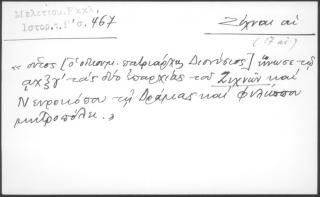 Μελετίου. Εκκλ.
Ιστορ. τ. Γ' σ. 467
Ζίχναι αἱ
(17 αἰ)
« οὗτος [ὁ οἰκουμ. πατριάρχης Διονύσιος] ἥνωσε τῷ
αχξγ' τάς δύο ἐπαρχίας τοῦ Ζιχνῶν καί
Νευροκόπου τῇ Δράμας καί Φιλίππου
μητροπόλει. »